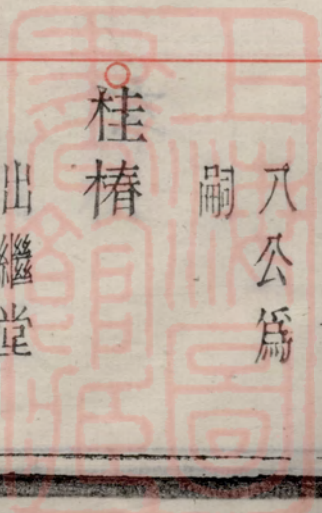 八公為
嗣
桂椿
出繼堂